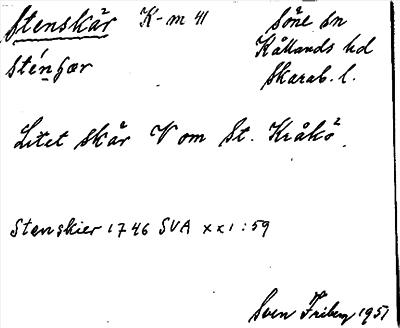 Stenskär K-m 41 Söne sn
Kållands hd
sténʃær Skarab. l.
Litet skär V om St. Kråkö.
Stenskier 1746 SVA XXI:59
Sven Friberg 1951